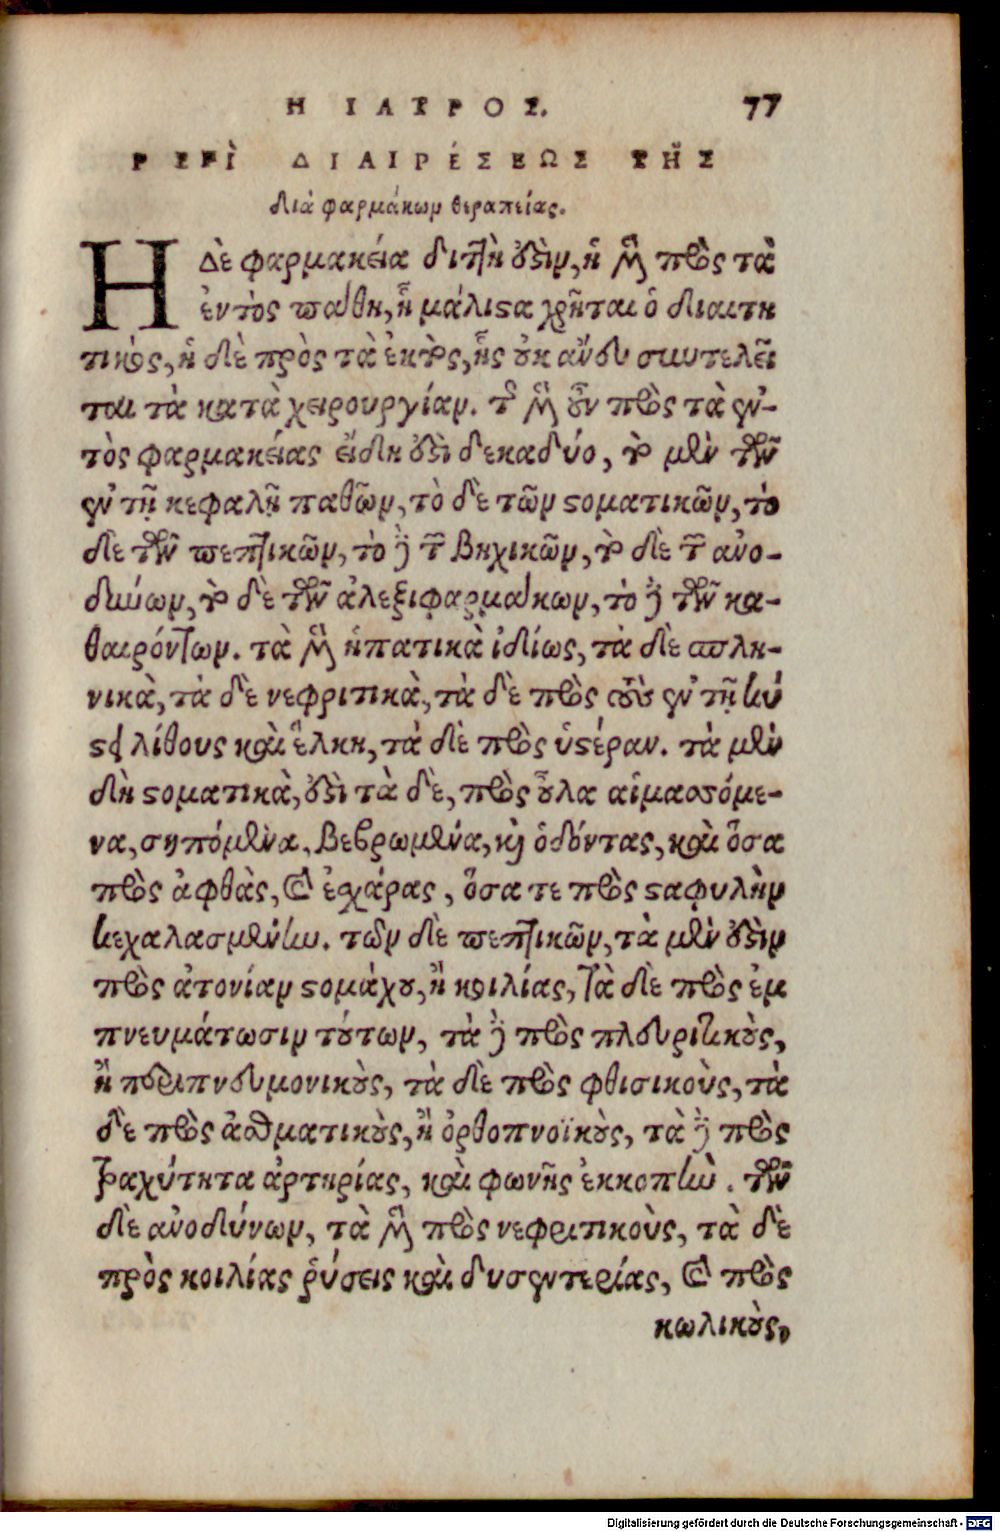 Η ΙΑΤΡΟΣ. 77
ΠΕΡῚ ΔΙΑΙΡΈΣΕΩΣ ΤΗ͂Σ
διὰ φαρμάκων θεραπείας.
Η δὲ φαρμακεία διττὴ ὅτιν, ἡ μὲν πρὸς τὰ
ἐντὸς πάθη, ᾗ μάλιστα χρῆται ὁ διαιτη
τικὸς, ἡ δὲ πρὸς τὰ ἐκτὸς, ἧς οὐκ ἄνευ συντελεῖ
ται τὰ κατὰ χειρουργίαν. τῆς μὲν οὖν πρὸς τὰ ἐν-
τὸς φαρμακείας εἴδη ἐστὶ δεκαδύο, τὸ μὲν τῶν
ἐν τῇ κεφαλῇ παθῶν, τὸ δὲ τῶν στοματικῶν, τὸ
δὲ τῶν πεπτικῶν, τὸ δὲ τῶν βηχικῶν, τὸ δὲ τῶν ἀνο-
δύνων, τὸ δὲ τῶν ἀλεξιφαρμάκων, τὸ δὲ τῶν κα-
θαιρόντων. τὰ μὲν ἡπατικὰ ἰδίως, τὰ δὲ σπλη-
νικὰ, τὰ δὲ νεφριτικὰ, τὰ δὲ πρὸς τοὺς ἐν τῇ κύ
στει λίθους καὶ ἕλκη, τὰ δὲ πρὸς ὑστέραν. τὰ μὲν
δὴ στοματικὰ, ἐστὶ τὰ δὲ, πρὸς οὖλα αἱμασσόμε-
να, σηπόμενα, βεβρωμένα, καὶ ὀδόντας, καὶ ὅσα
πρὸς ἀφθὰς, καὶ ἐσχάρας, ὅσα τε πρὸς σταφυλὴν
κεχαλασμένην. τῶν δὲ πεπτικῶν, τὰ μὲν ἐστὶν
πρὸς ἀτονίαν στομάχου, ἢ κοιλίας, τὰ δὲ πρὸς ἐμ
πνευμάτωσιν τούτων, τὰ δὲ πρὸς πλευριτικοὺς,
ἢ περιπνευμονικοὺς, τὰ δὲ πρὸς φθισικοὺς, τὰ
δὲ πρὸς ἀσθματικοὺς, ἢ ὀρθοπνοϊκοὺς, τὰ δὲ πρὸς
τραχύτητα ἀρτηρίας, καὶ φωνῆς ἐκκοπὴν. τῶν
δὲ ἀνοδύνων, τὰ μὲν πρὸς νεφριτικοὺς, τὰ δὲ
πρὸς κοιλίας ῥύσεις καὶ δυσεντερίας, καὶ πρὸς
κωλικοὺς,
Digitalisierung gefördert durch die Deutsche Forschungsgemeinschaft - DFG